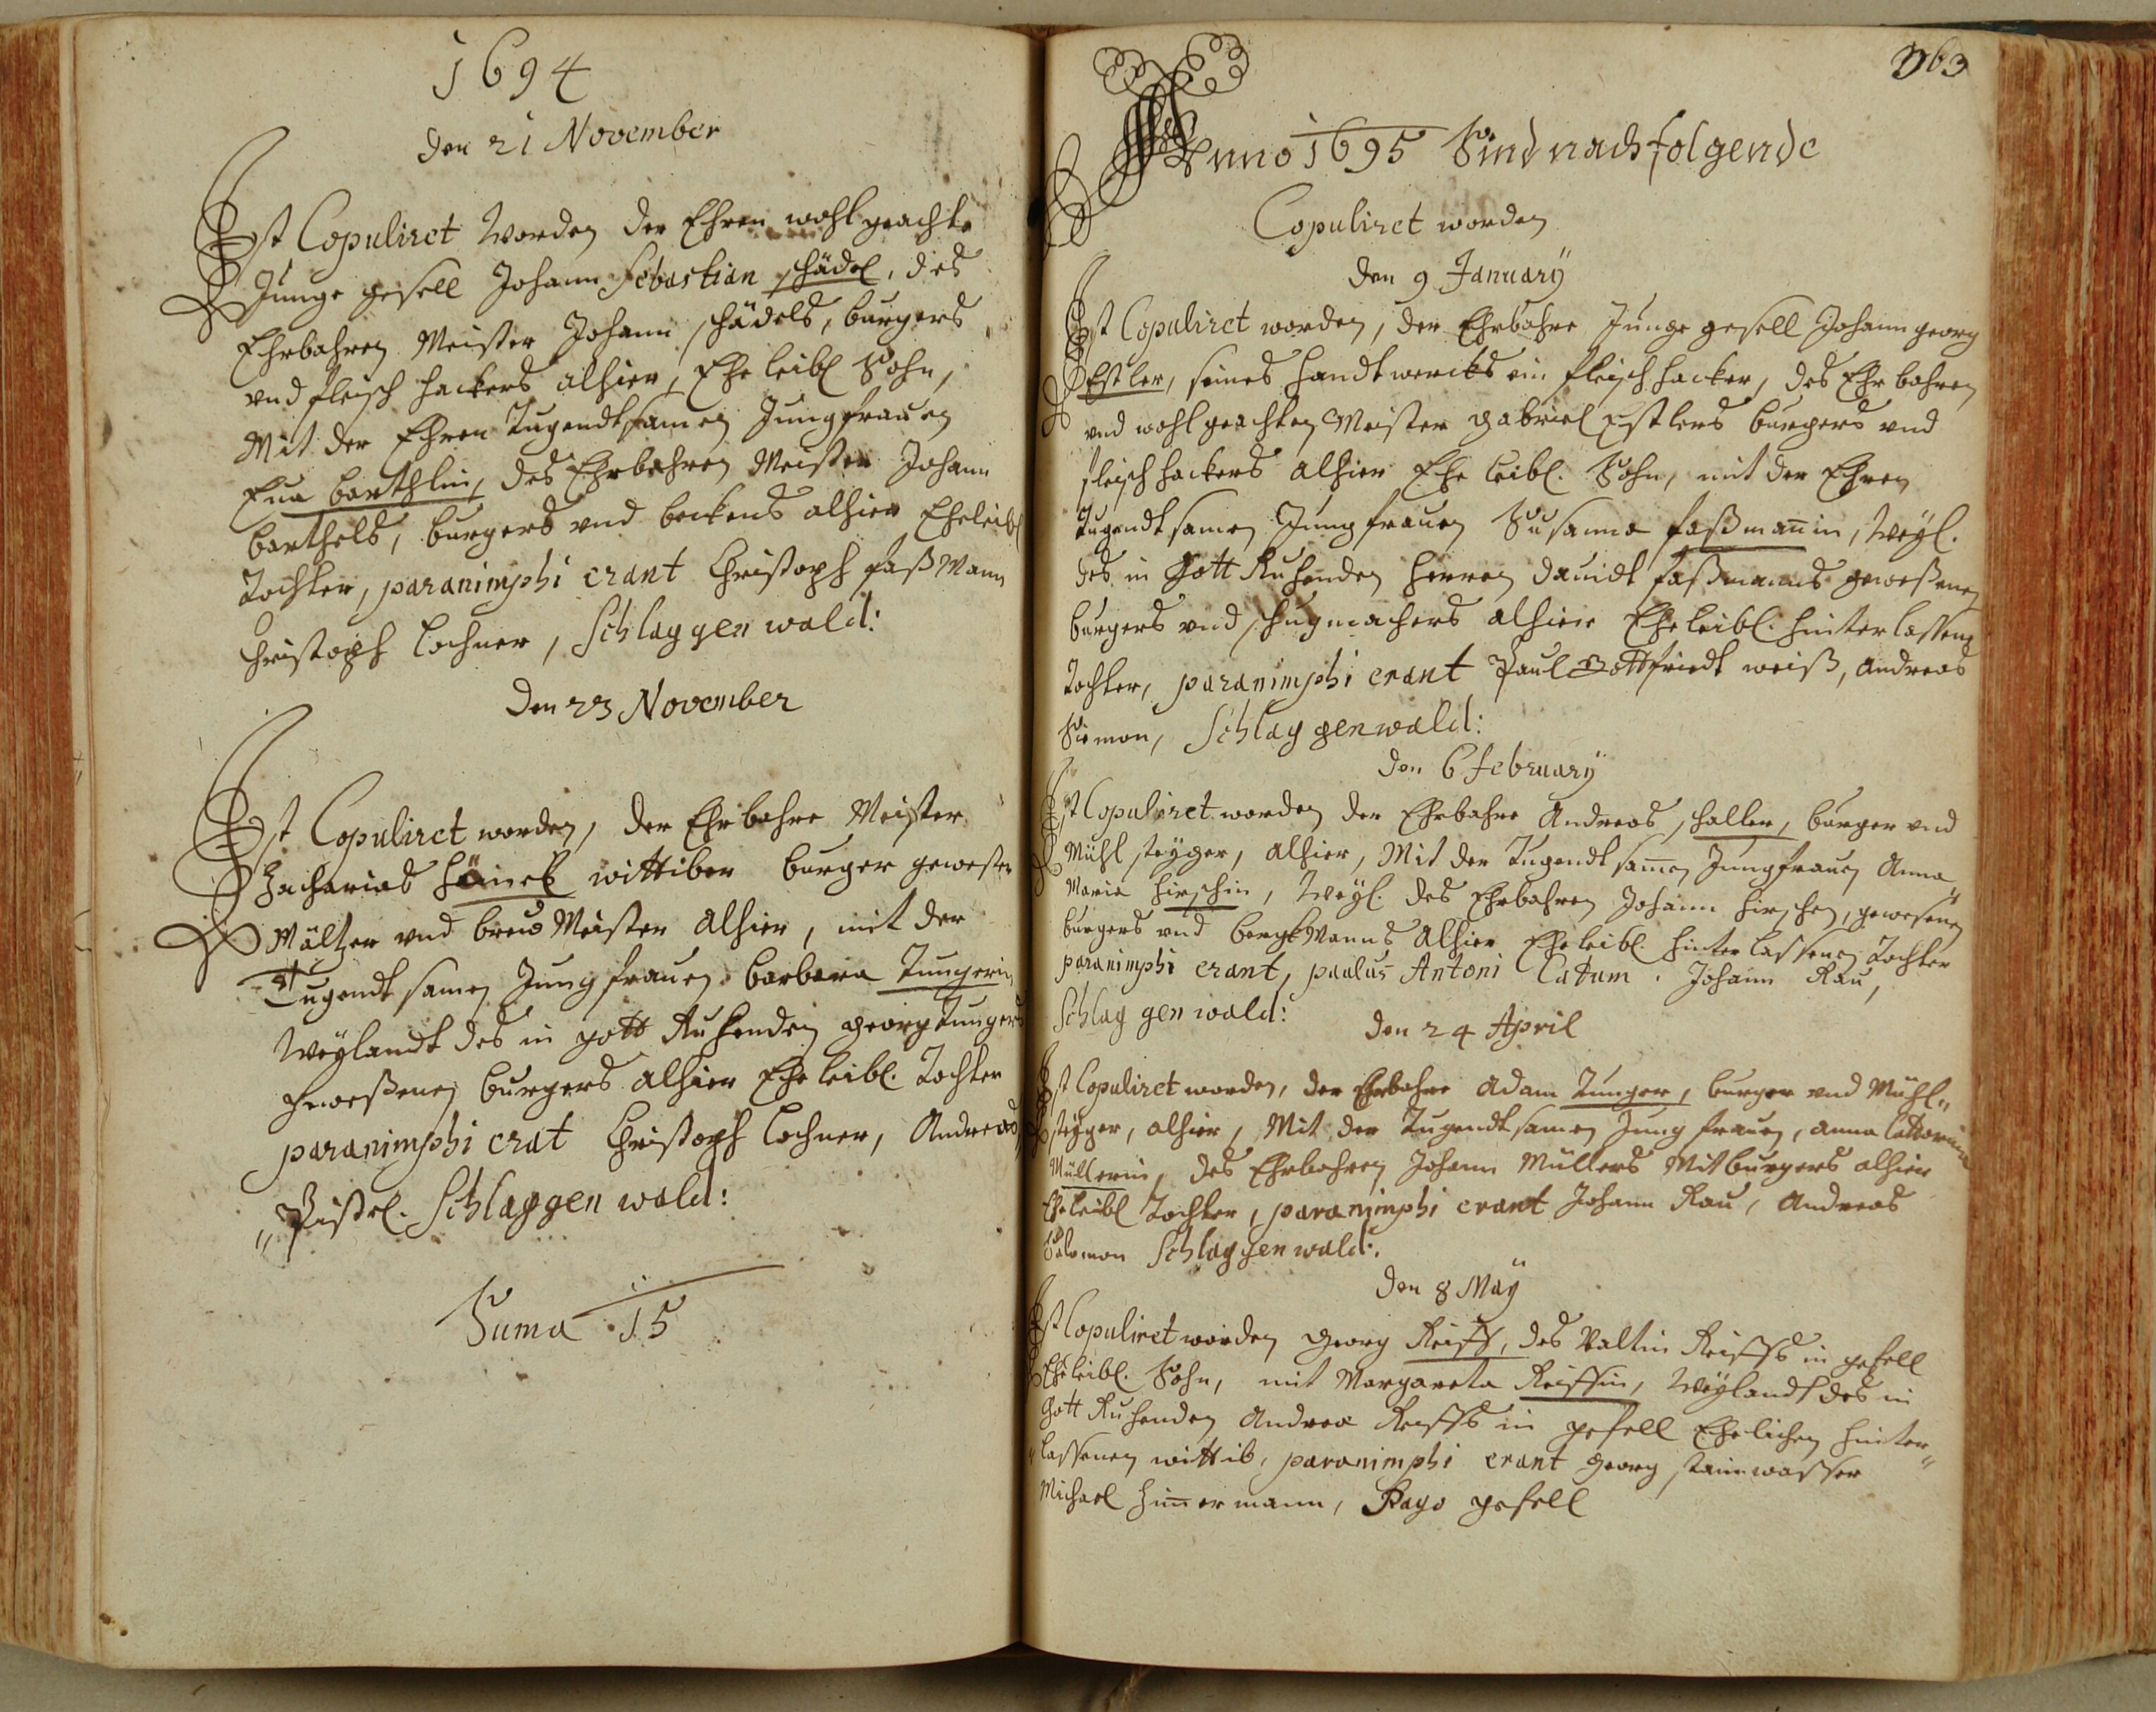 1694
den 21 November
Ist Copuliret worden der Ehren wohl geachte
Junge gesell Johann Sebastian schädel, des
Ehrbahren Meister Johann schädels, burgers
vnd fleisch hackers alhier, Ehe leibl Sohn,
Mit der Ehren Tugendtsamen Jungfrauen
Eua barthlin, des Ehrbahren Meister Johann
barthels, burgers vnd beckens alhier Eheleibl
Tochter, paranimphi erant Christoph faß Mann
Christoph Lochner, Schlaggen wald:
Den 23 November
Ist Copuliret worden, der Ehrbahre Meister
Zacharias wittiber burger gewester
Mältzer vnd breu Meister alhier, mit der
Tugendt samen Jungfrauen barbara Tungerin
Weylandt des in gott Ruhenden georg tungers
geweßenen burgers alhier Ehe leibl. Tochter
paranimphi erat Christoph Lochner, Andreas
Pistel. Schlaggen wald:
Suma 15
363
Anno 1695 Sind nachfolgende
Copuliret worden
den 9 January
Ist Copuliret worden, der Ehrbahre Junge gesell Johann georg
Estler, seines handtwercks ein fleisch hacker, des Ehrbahren
vnd wohl geachten Meister gabriel Estlers burgers vnd
fleisch hackers alhier Ehe leibl. Sohn, mit der Ehren
tugendtsamen Jungfrauen Susanna faßmañin, Weyl.
des in Gott Ruhenden herren dauidt faßmanns geweßenen
burgers vnd schugmachers alhier Eheleibl. hinterlassene
tochter, paranimphi erant Paul Gottfriedt weiß, Andreas
Simon, Schlaggenwald:
den 6 february
Ist Copuliret worden der Ehrbahre Andreas, haller, burger vnd
Mühl steyger, alhier, Mit der Tugendt samen Jungfrauen Anna
Maria hirschin, Weyl. des Ehrbahren Johann hirschen, gewesenen
burgers vnd bergk Manns Alhier Eheleibl. hinterlassenen Tochter
paranimphi erant, paulus Antoni Catum. Johann Rau,
Schlaggen wald:
den 24 April
Ist Copuliret worden, der Ehrbahre Adam Tunger, burger vnd Mühl„
steyger, alhier, Mit der Tugendt samen Jungfrauen, anna Cattarina
Müllerin, des Ehrbahren Johann Müllers Mitburgers alhier
Eheleibl Tochter, paranimphi erant Johann Rau, Andreas
Salomon Schlaggenwald:.
den 8 May
Ist Copuliret worden georg Reiss, des Valtin Reisss in gefell
Eheleibl. Sohn, mit Margareta Reissin, Weylandt des in
Gott Ruhenden Andrea Reisss in gefell Ehelichen hinter„
„lassenen wittib, paranimphi erant georg stainwasser
Michael Zim̄ermann, Pago gefell